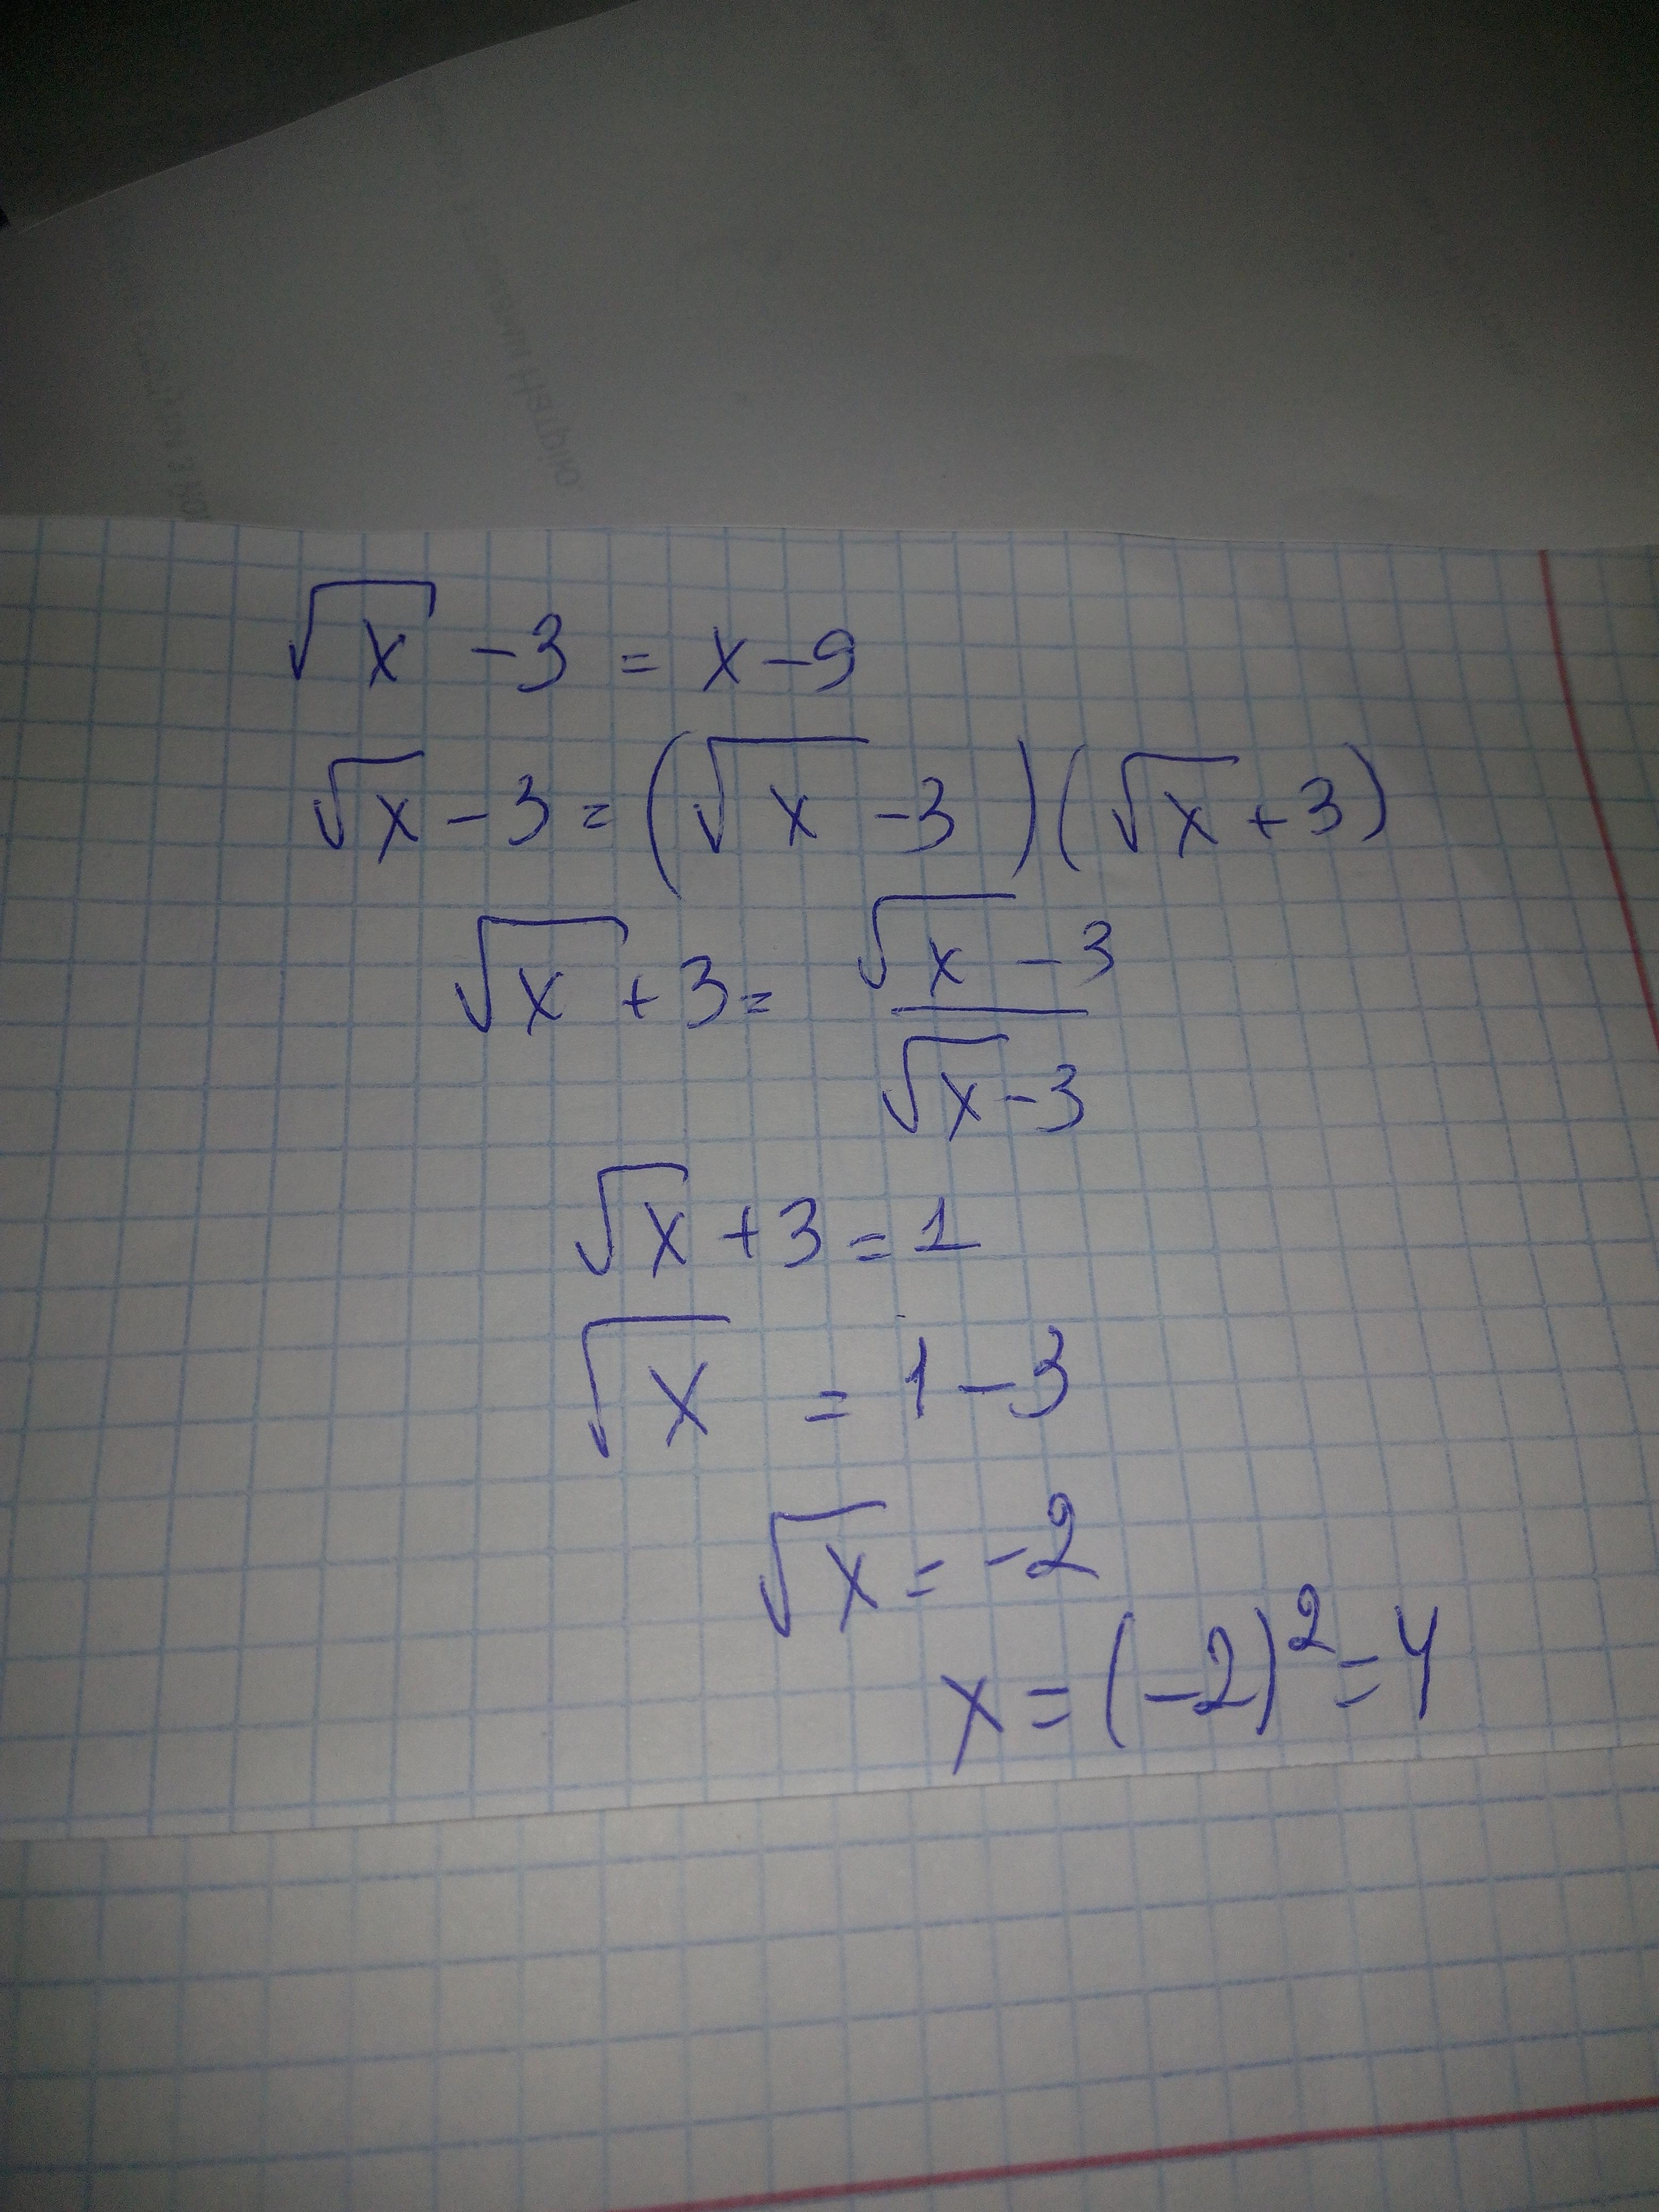 √x - 3 = x - 9
√x - 3 = (√x - 3)(√x + 3)
√x + 3 = (√x - 3)/(√x - 3)
√x + 3 = 1
√x = 1 - 3
√x = -2
x = (-2)² = 4